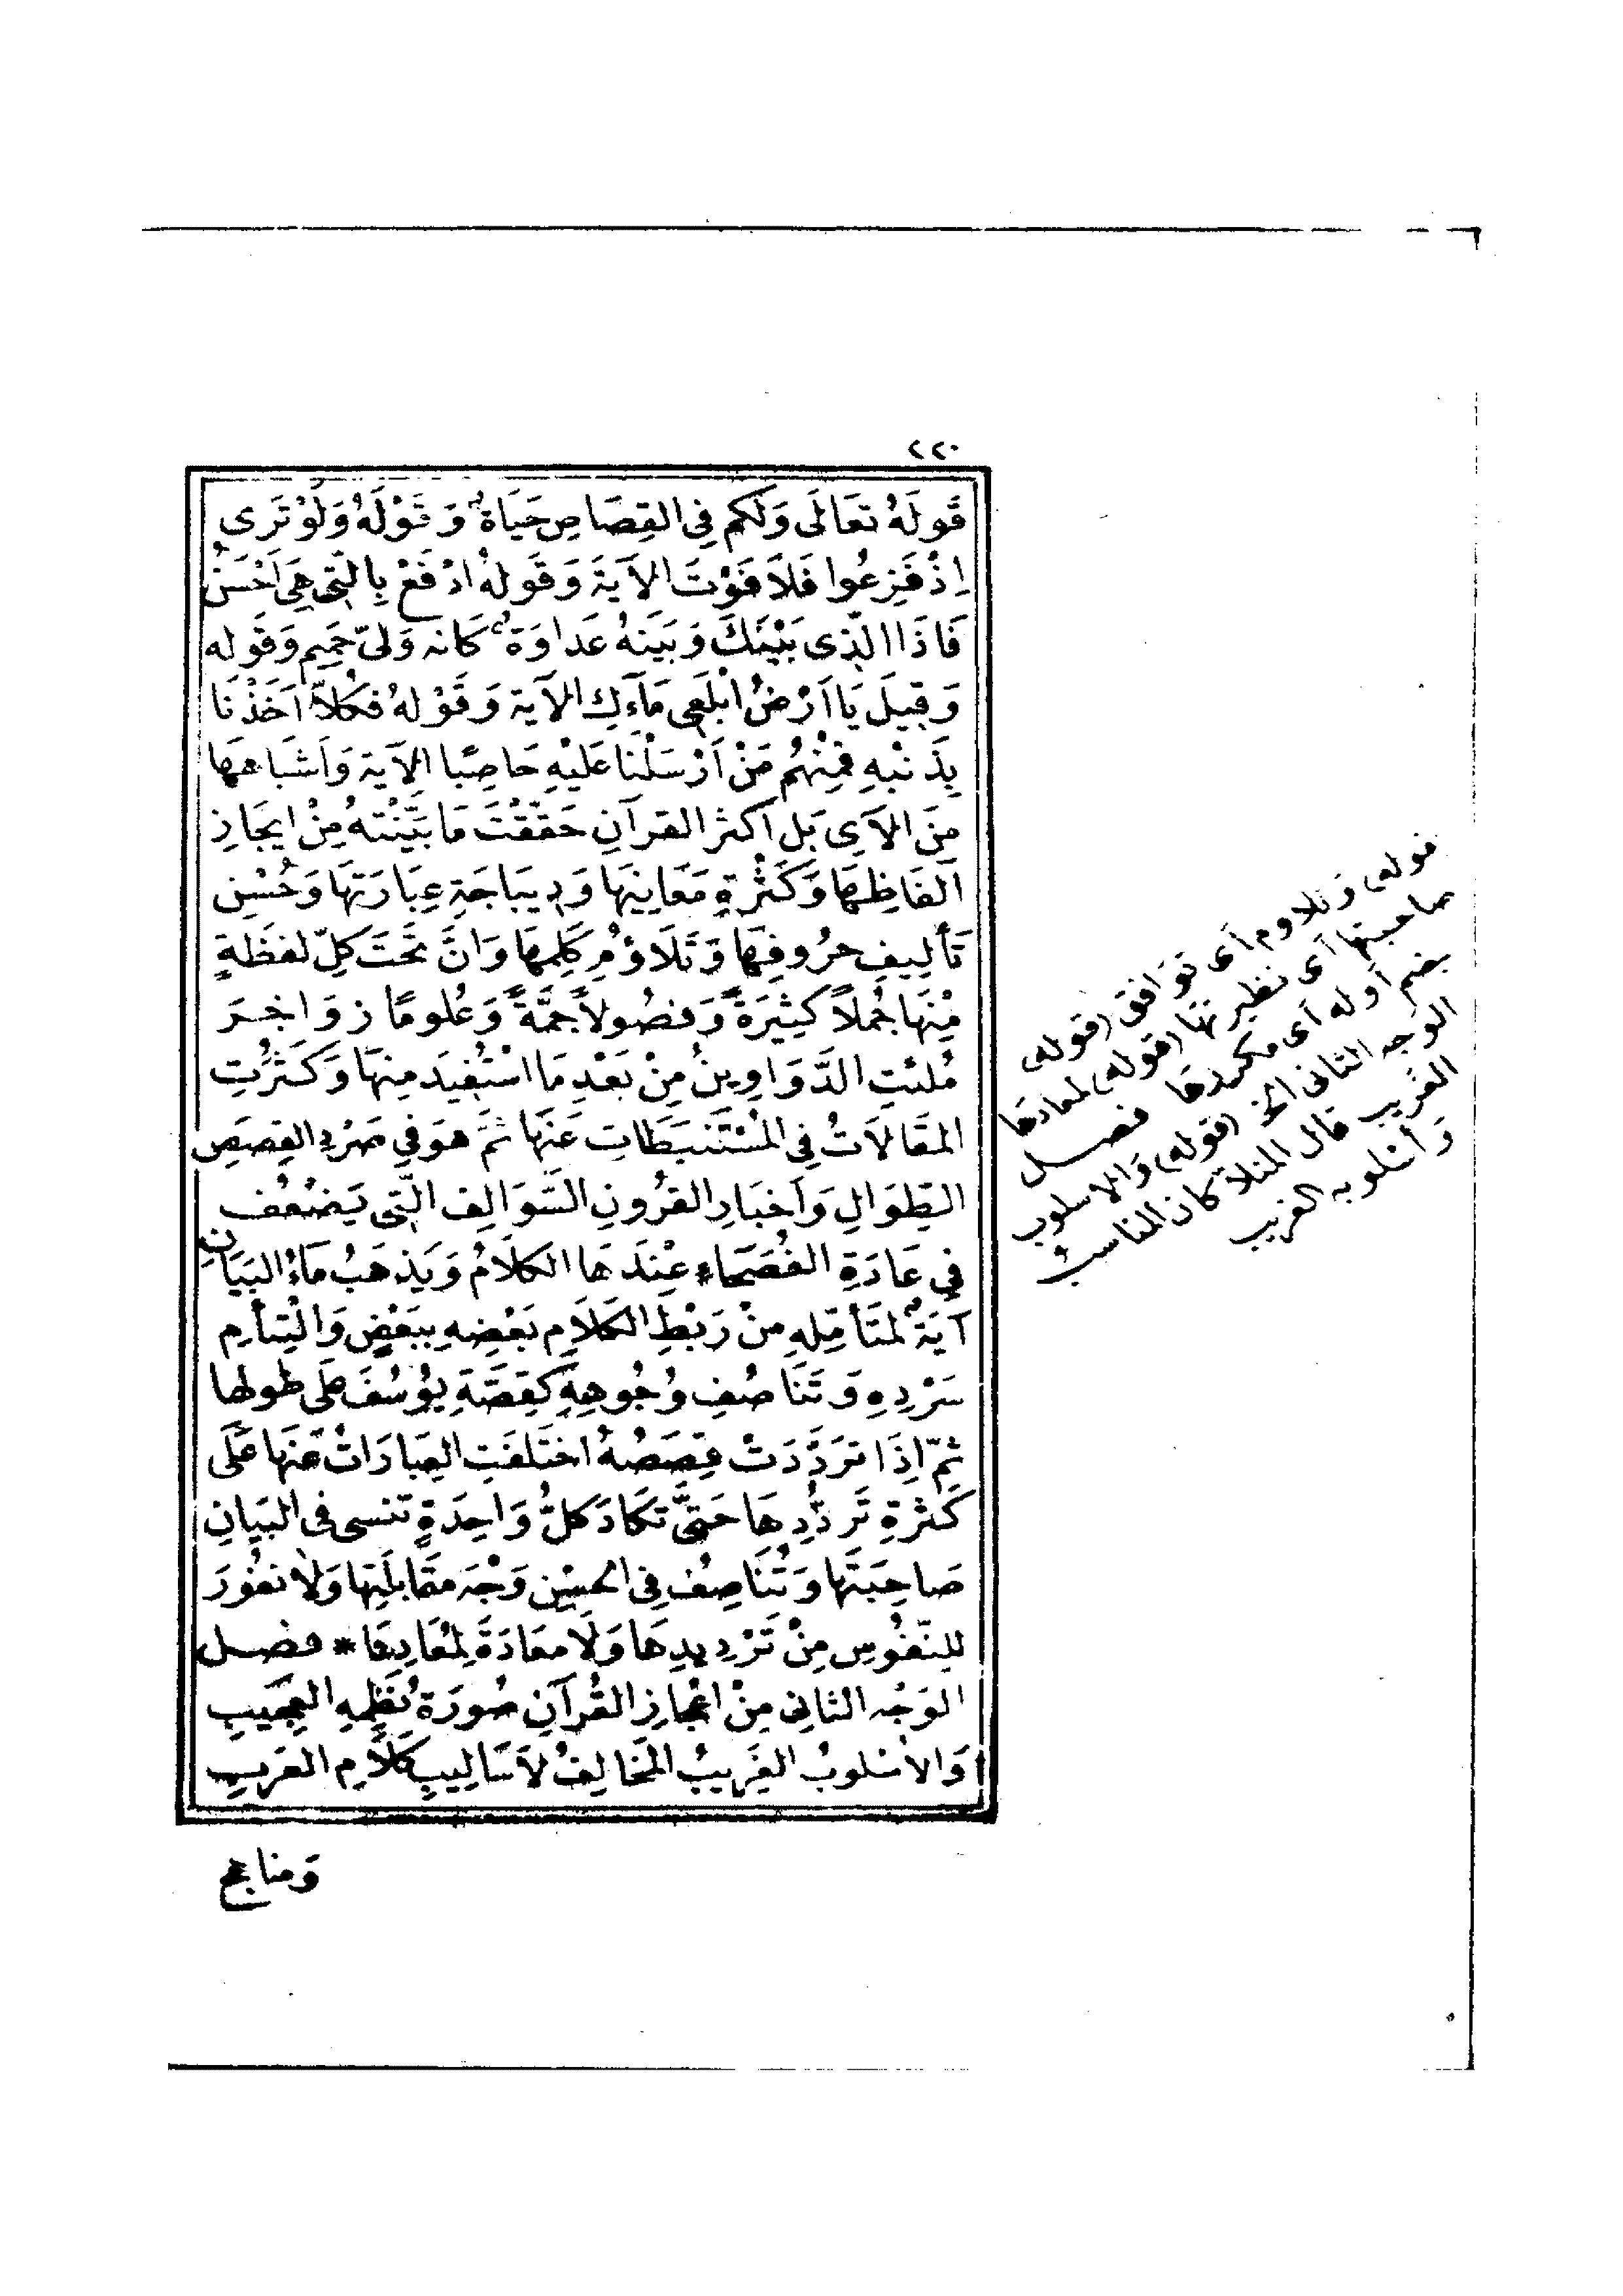 ٢٢٠
قَولَهُ تعَالَى وَلَكم فِى القِصَاصِ حَيَاةٌ وَقَوْلَهُ وَلَوْ تَرى
اِذْ فَزِعُوا فَلَا فَوْتَ الآيَةَ وَقَولهُ ادْفَعْ بِالَّتى هِىَ اَحْسَنُ
فَاذَا الذِى بَيْنَكَ وَبَينهُ عَدَاوَةٌ كَانه وَلىّ حَمِيم وَقَوله
وَقِيلَ يَا اَرْضُ ابْلَعِى مَآءَكِ الآيَة وَقَوْلهُ فكُلاًّ اَخَذْنَا
بِذَنْبِهِ فمِنْهُم مَنْ اَرْسَلْنَا عَلَيْهِ حَاصِبًا الآيَة وَاَشبَاهِهَا
مِنَ الآىِ بَل اَكثَر القرآنِ حَقَقْتَ مَا بَيَّنْتهُ مِنْ ايجَازِ
اَلفَاظِهَا وَكَثْرَةِ مَعَانِيهَا وَدِيبَاجَةِ عِبَارَتهَا وَحُسْنِ
تَأليفِ حرُوفِهَا وَتَلَاؤُمِ كلِمهَا وَانَّ تَحَتَ كلّ لفظَةٍ
مِنْهَا جُمَلاً كَثِيرَةً وَفصُولاً جَمَّةً وَعُلومًا زوَاخِرَ
مُلئتِ الدَّوَاوِينُ مِنْ بَعْدِ مَا اسْتُفِيدَ مِنهَا وَكَثُرَتِ
المقَالَاتُ فِى المُسْتَنبَطَاتِ عَنهَا ثمّ هوَ فِى سَرْدِ القِصَصِ
الطِوَالِ وَاَخبَارِ القرُونِ السَّوَالِفِ الَّتِى يَضْعُفُ
فِى عَادَةِ الفُصَحَاءِ عِنْدَهَا الكلَامُ وَيَذهَبُ مَاءُ البَيَانِ
آيَةٌ لمتَأمِّلِهِ مِنْ رَبْطِ الكَلَامِ بَعْضِهِ بِبَعْضٍ وَالتِئَامِ
سَرْدِهِ وَتَنَاصُفِ وُجُوهِهِ كَقِصَّةِ يُوسُفَ عَلَى طولها
ثمّ اِذَا تَرَدَّدَتْ قِصَصُهُ اختَلفَتِ العِبَارَاتُ عَنهَا عَلَى
كَثرَةِ تَرَدُّدِهَا حَتىَّ تكَادَ كلُّ وَاحِدَةٍ تنسى فى البَيَانِ
صَاحِبَتَهَا وَتُنَاصِفُ فِى الحسْنِ وَجْهَ مقَابلَتِهَا وَلَا نفُورَ
للنّفُوسِ مِنْ تَرْدِيدِهَا وَلَا معَادَةَ لِمُعَادِهَا * فصل
الوَجْه الثانِى مِنْ اعْجازِ القُرآنِ صُورَةُ نَظمِهِ العَجِيبِ
وَالاُسْلوبُ الغَرِيبُ المخَالِفُ لأَسَالِيبِ كَلَامِ العَربِ
وَمناهج
قوله وتلاوم اَى توَافق (قوله
صاحبتها اَى نظيرتها (قوله لمعادهَا
بضم اَوله اَى مكررهَا فصل
الوجه الثانى الخ (قوله وَالاسلوب
الغريب قال المنلا كان المناسبُ
وَاُسلوبه الغريب